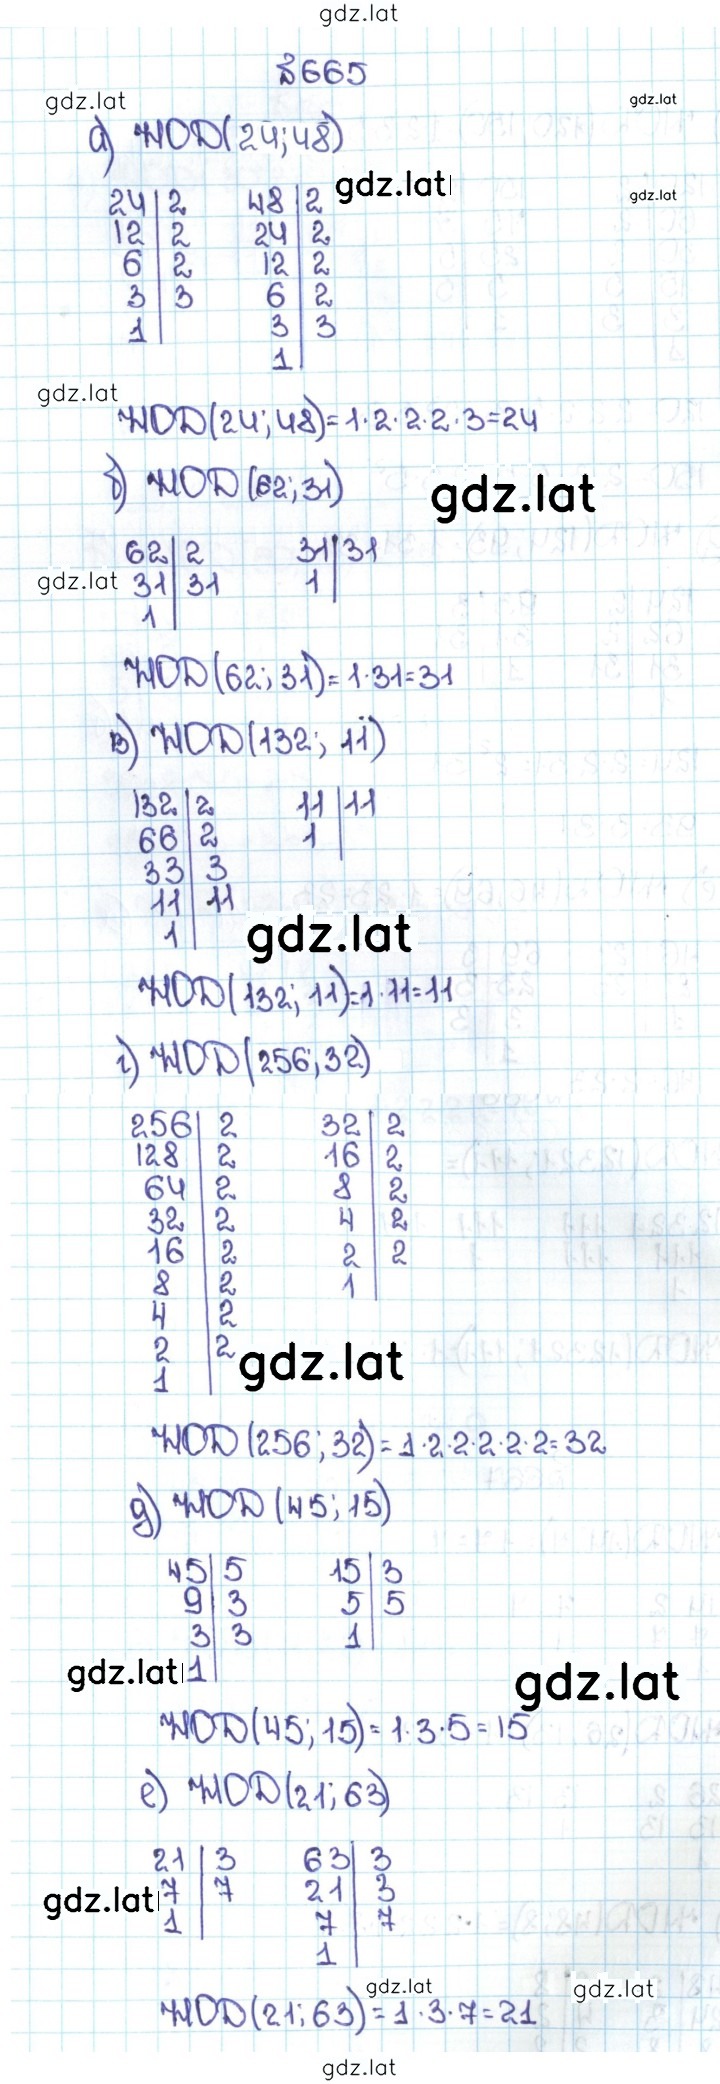 gdz.lat
№665
gdz.lat gdz.lat
а) НОД(24;48)
gdz.lat gdz.lat
24|2 48|2
12|2 24|2
6|2 12|2
3|3 6|2
1| 3|3
1|
gdz.lat
НОД(24;48)=1·2·2·2·3=24
б) НОД(62;31)
gdz.lat
62|2 31|31
gdz.lat 31|31 1|
1|
НОД(62;31)=1·31=31
в) НОД(132; 11)
132|2 11|11
66|2 1|
33|3
11|11
1|
gdz.lat
НОД(132; 11)=1·11=11
г) НОД(256;32)
256|2 32|2
128|2 16|2
64|2 8|2
32|2 4|2
16|2 2|2
8|2 1|
4|2
2|2
gdz.lat
1|
НОД(256;32)=1·2·2·2·2·2=32
д) НОД(45;15)
45|5 15|3
9|3 5|5
3|3 1|
gdz.lat 1| gdz.lat
НОД(45;15)=1·3·5=15
е) НОД(21;63)
21|3 63|3
gdz.lat 7|7 21|3
1| 7|7
1|
gdz.lat gdz.lat
НОД(21;63)=1·3·7=21
gdz.lat